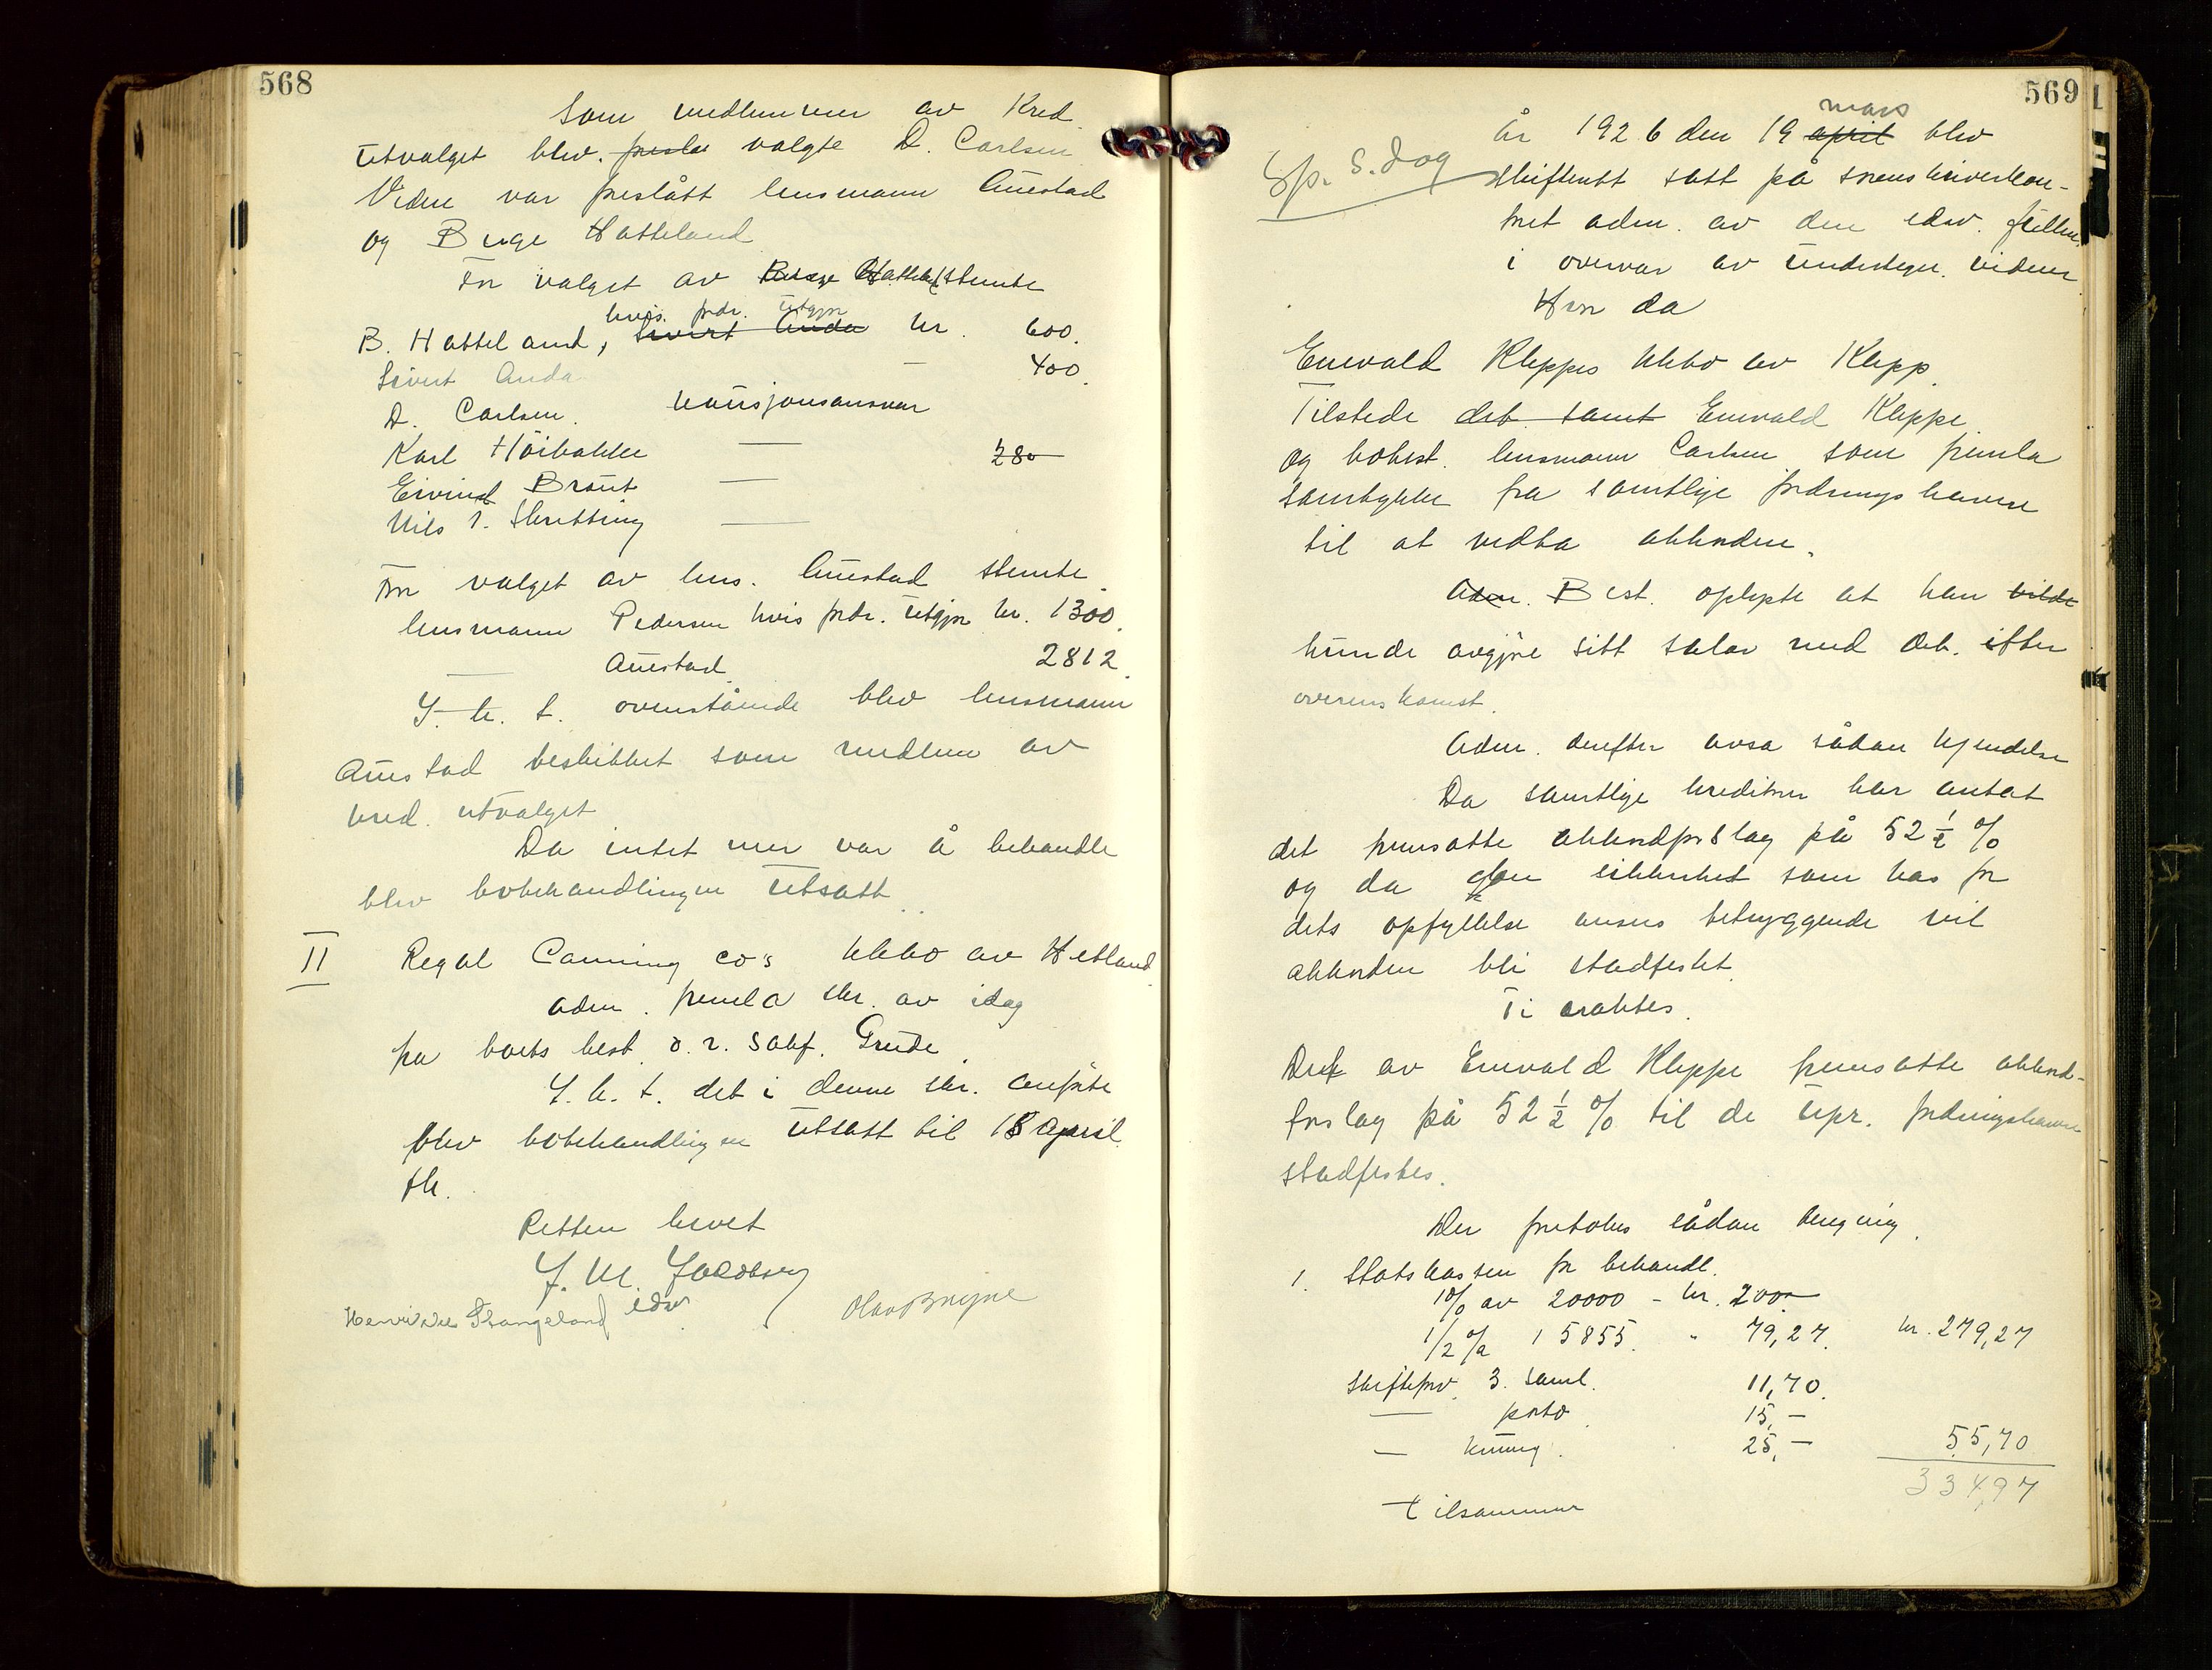 568
Som medlemmer av Kred.
utvalget blev. foresla valgte D. Carlsen
Videre var foreslått lensmann Auestad
og Birge Hatteland
For valget av Birge Hattelad stemte
hvis. fordr. utgjør
B. Hatteland, Sivert Anda kr. 600.
Sivert Anda — 400.
D. Carlsen. kausjonsansvar
Karl Höibakke — 280
Eivind Braut —
Nils T. Skretting —
For valget av lens. Auestad stemte
lensmann Pedersen hvis fordr. utgjør kr. 1300.
— Auestad 2812.
I h. t. ovenstående blev lensmann
Auestad beskikket som medlem av
kred. utvalget
Da intet mer var å behandle
blev bobehandlingen utsatt..
II Regal Canning co's kkbo av Hetland
adm. fremla skr. av idag
fra boets best. o. r. sakf. Grude.
I. h. t. det i denne skr. anførte
blev bobehandlingen utsatt til 18 April
fk.
Retten hevet
J. M. Jacobsen
edsv.
Henrikke Thangeland Olav Bryne
569
mars
År 1926 den 19 april blev
Sp. S. dag skifterett satt på sorenskriverkon-
toret adm. av den edsv. fullm.
i overvær av undertegn. vidner
Hvor da
Enevald Kleppes kkbo av Klepp.
Tilstede deb. samt Enevald Kleppe
og bobest. lensmann Carlsen som fremla
samtykke fra samtlige fordringshavere
til at vedta akkorden.
Adm. Best. oplyste at han vilde
kunde avgjøre sitt salær med deb. efter
overenskomst.
Adm. derefter avsa sådan kjendelse
Da samtlige kreditorer har antat
det fremsatte akkordforslag på 52 1/2 %
og da den sikkerhet som has for
dets opfyllelse ansees betryggende vil
akkorden bli stadfestet.
Ti eraktes.
Det av Enevald Kleppe fremsatte akkord-
forslag på 52 1/2 % til de upr. fordringshavere
stadfestes.
Der foretokes sådan beregning.
1. Statskassen for behandl.
1 % av 20000 - kr. 200 —
1/2 % 15855. " 79,27. kr. 279,27
Skifteforv. 3. saml. 11,70.
— porto. 15,—
— kunng. 25,— 55,70
334,97
tilsammen